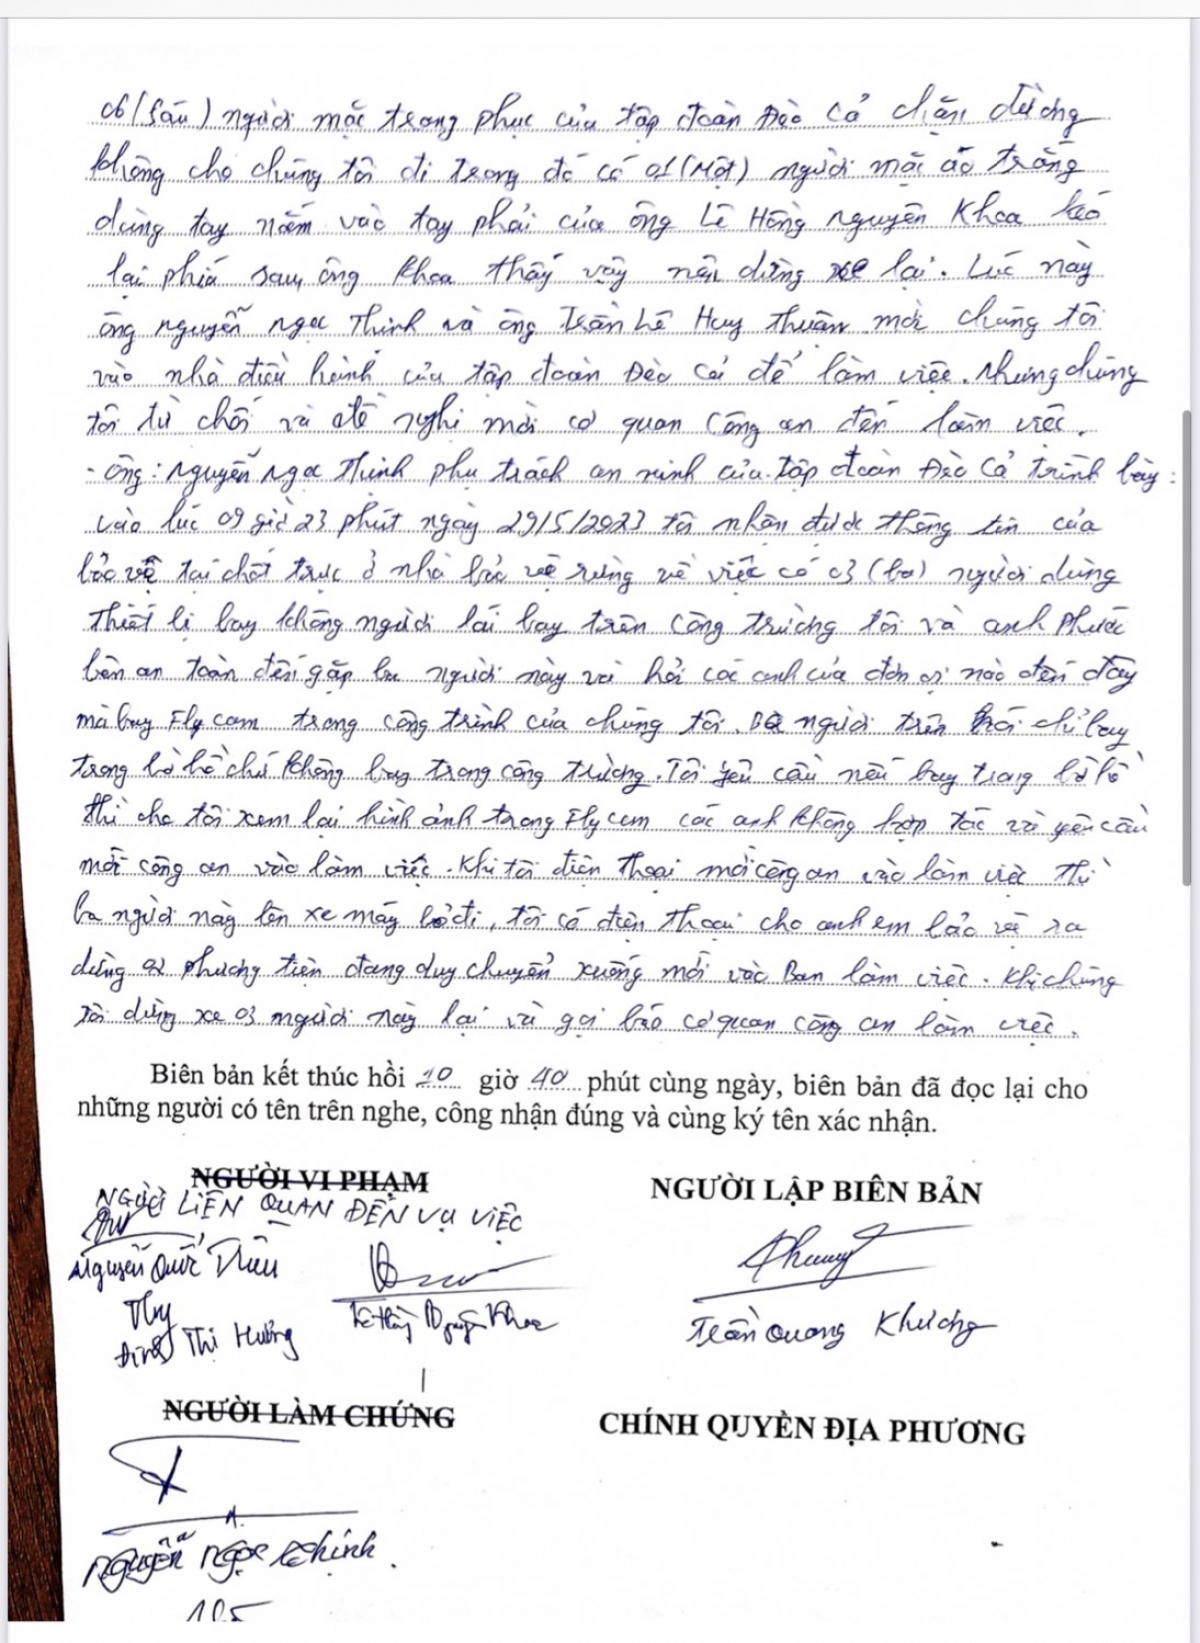 06 (Sáu) người mặc trang phục của tập đoàn Đèo Cả chặn đường
không cho chúng tôi đi trong đó có 01 (Một) người mặc áo trắng
dùng tay nắm vào tay phải của ông Lê Hồng Nguyên Khoa kéo
lại phía sau, ông Khoa thấy vậy nên dừng xe lại. Lúc này
ông Nguyễn Ngọc Thính và ông Trần Lê Huy Thuận mời chúng tôi
vào nhà điều hành của tập đoàn Đèo Cả để làm việc. Nhưng chúng
tôi từ chối và đề nghị mời cơ quan Công an đến làm việc.
- Ông: Nguyễn Ngọc Thính phụ trách an ninh của tập đoàn Đèo Cả trình bày:
vào lúc 09 giờ 23 phút ngày 29/5/2023 tôi nhận được thông tin của
bảo vệ tại chốt trực ở nhà bảo vệ rừng về việc có 03 (ba) người dùng
thiết bị bay không người lái bay trên công trường tôi và anh Phước
bên an toàn đến gặp ba người này và hỏi các anh của đơn vị nào đến đây
mà bay Fly cam trong công trình của chúng tôi. Ba người trên nói chỉ bay
trong bờ hồ chứ không bay trong công trường. Tôi yêu cầu nếu bay trong bờ hồ
thì cho tôi xem lại hình ảnh trong Fly cam các anh không hợp tác và yêu cầu
mời công an vào làm việc. Khi tôi điện thoại mời công an vào làm việc thì
ba người này lên xe máy bỏ đi, tôi có điện thoại cho anh em bảo vệ ra
dừng phương tiện đang duy chuyển xuống mời vào Ban làm việc. Khi chúng
tôi dừng xe 03 người này lại và gọi báo cơ quan công an làm việc.
Biên bản kết thúc hồi 10 giờ 40 phút cùng ngày, biên bản đã đọc lại cho
những người có tên trên nghe, công nhận đúng và cùng ký tên xác nhận.
NGƯỜI VI PHẠM NGƯỜI LẬP BIÊN BẢN
NGƯỜI LIÊN QUAN ĐẾN VỤ VIỆC
Nguyễn Quốc Triều
Lê Hồng Nguyên Khoa Trần Quang Khương
Đinh Thị Hưởng
NGƯỜI LÀM CHỨNG CHÍNH QUYỀN ĐỊA PHƯƠNG
Nguyễn Ngọc Thính